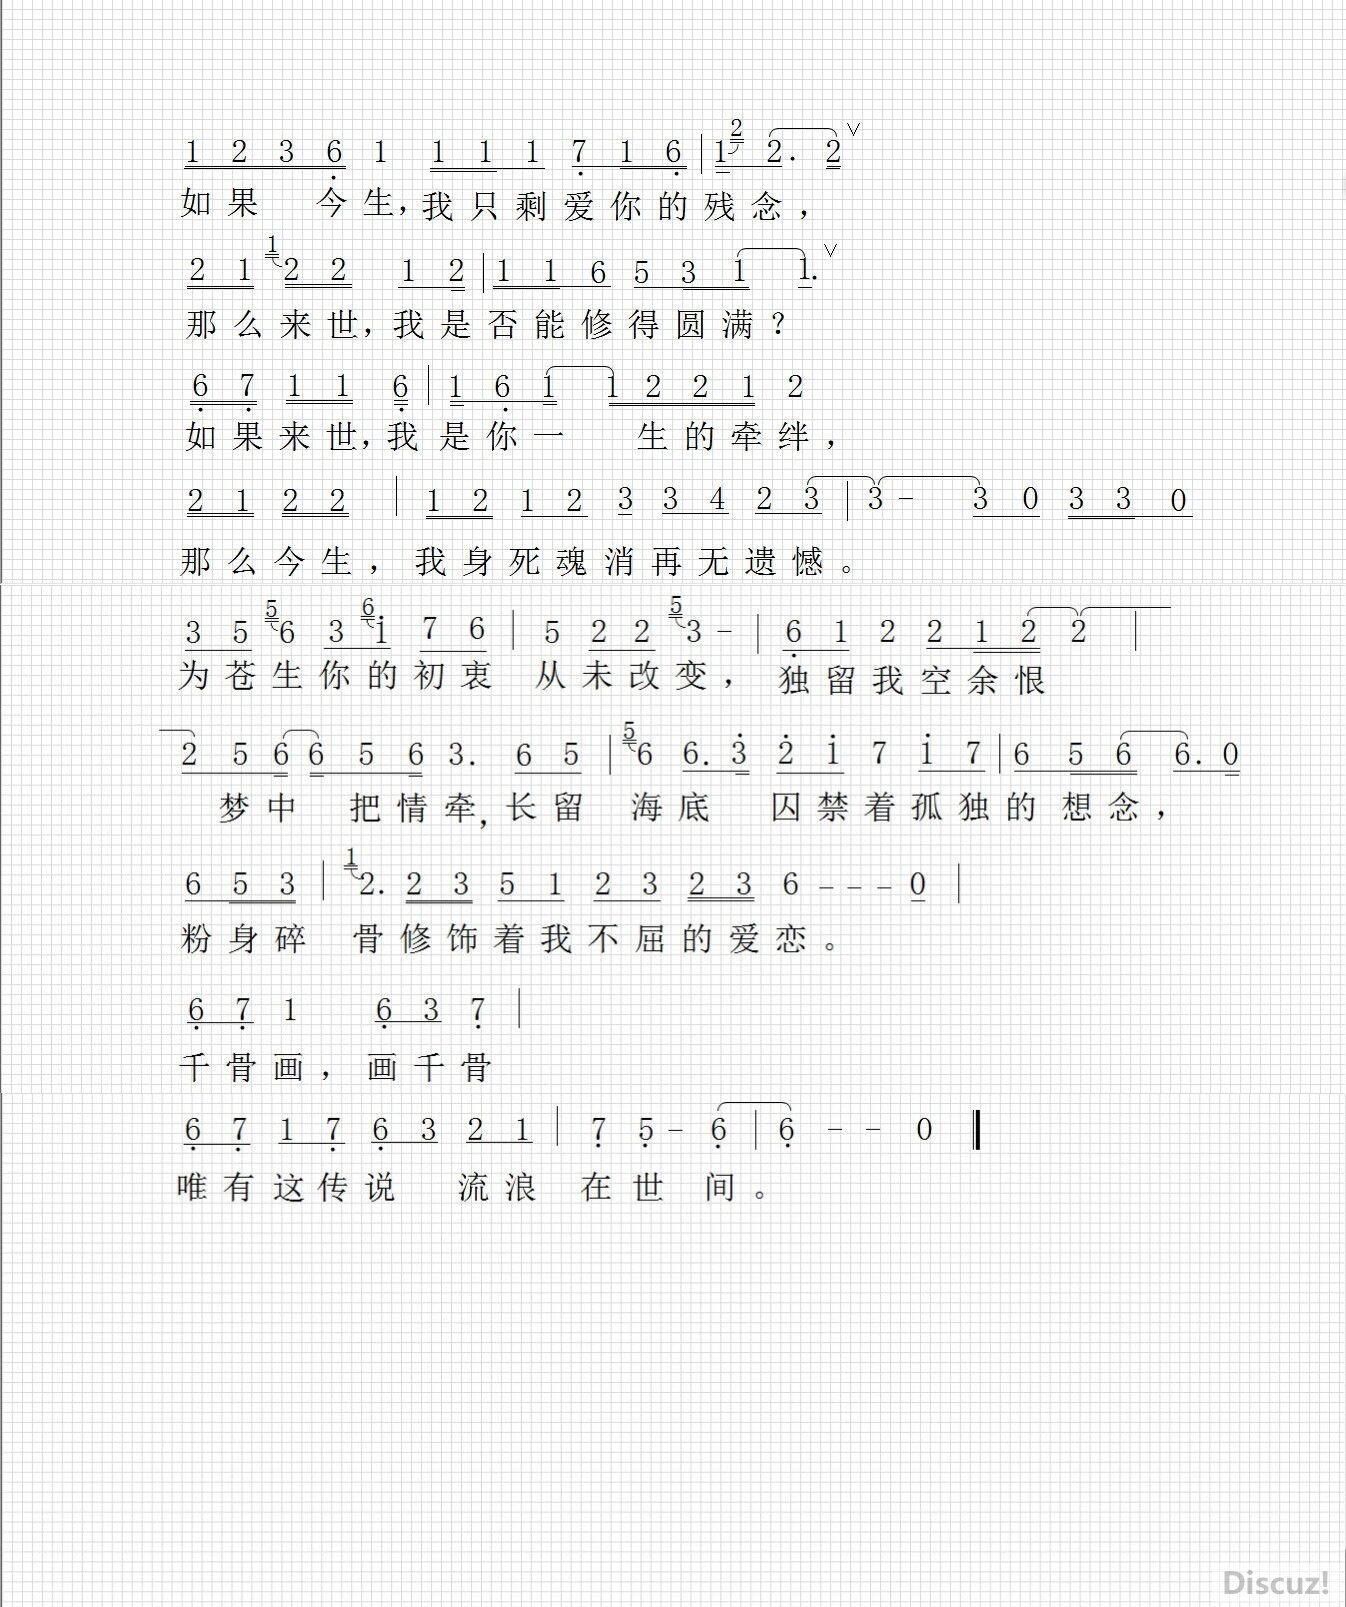 1 2 3 6 1 1 1 1 7 1 6 | 2 1 2. 2 ∨
如果 今生,我只剩爱你的残念，
2 1 1 2 2 1 2 | 1 1 6 5 3 1 1. ∨
那么来世,我是否能修得圆满？
6 7 1 1 6 | 1 6 1 1 2 2 1 2
如果来世,我是你一 生的牵绊，
2 1 2 2 | 1 2 1 2 3 3 4 2 3 | 3 - 3 0 3 3 0
那么今生，我身死魂消再无遗憾。
3 5 5 6 3 6 1 7 6 | 5 2 2 5 3 - | 6 1 2 2 1 2 2 |
为苍生你的初衷 从未改变，独留我空余恨
2 5 6 6 5 6 3. 6 5 | 5 6 6. 3 2 1 7 1 7 | 6 5 6 6. 0
梦中 把情牵,长留 海底 囚禁着孤独的想念，
6 5 3 | 1 2. 2 3 5 1 2 3 2 3 6 - - - 0 |
粉身碎 骨修饰着我不屈的爱恋。
6 7 1 6 3 7 |
千骨画，画千骨
6 7 1 7 6 3 2 1 | 7 5 - 6 | 6 - - 0 ‖
唯有这传说 流浪 在世 间。
Discuz!